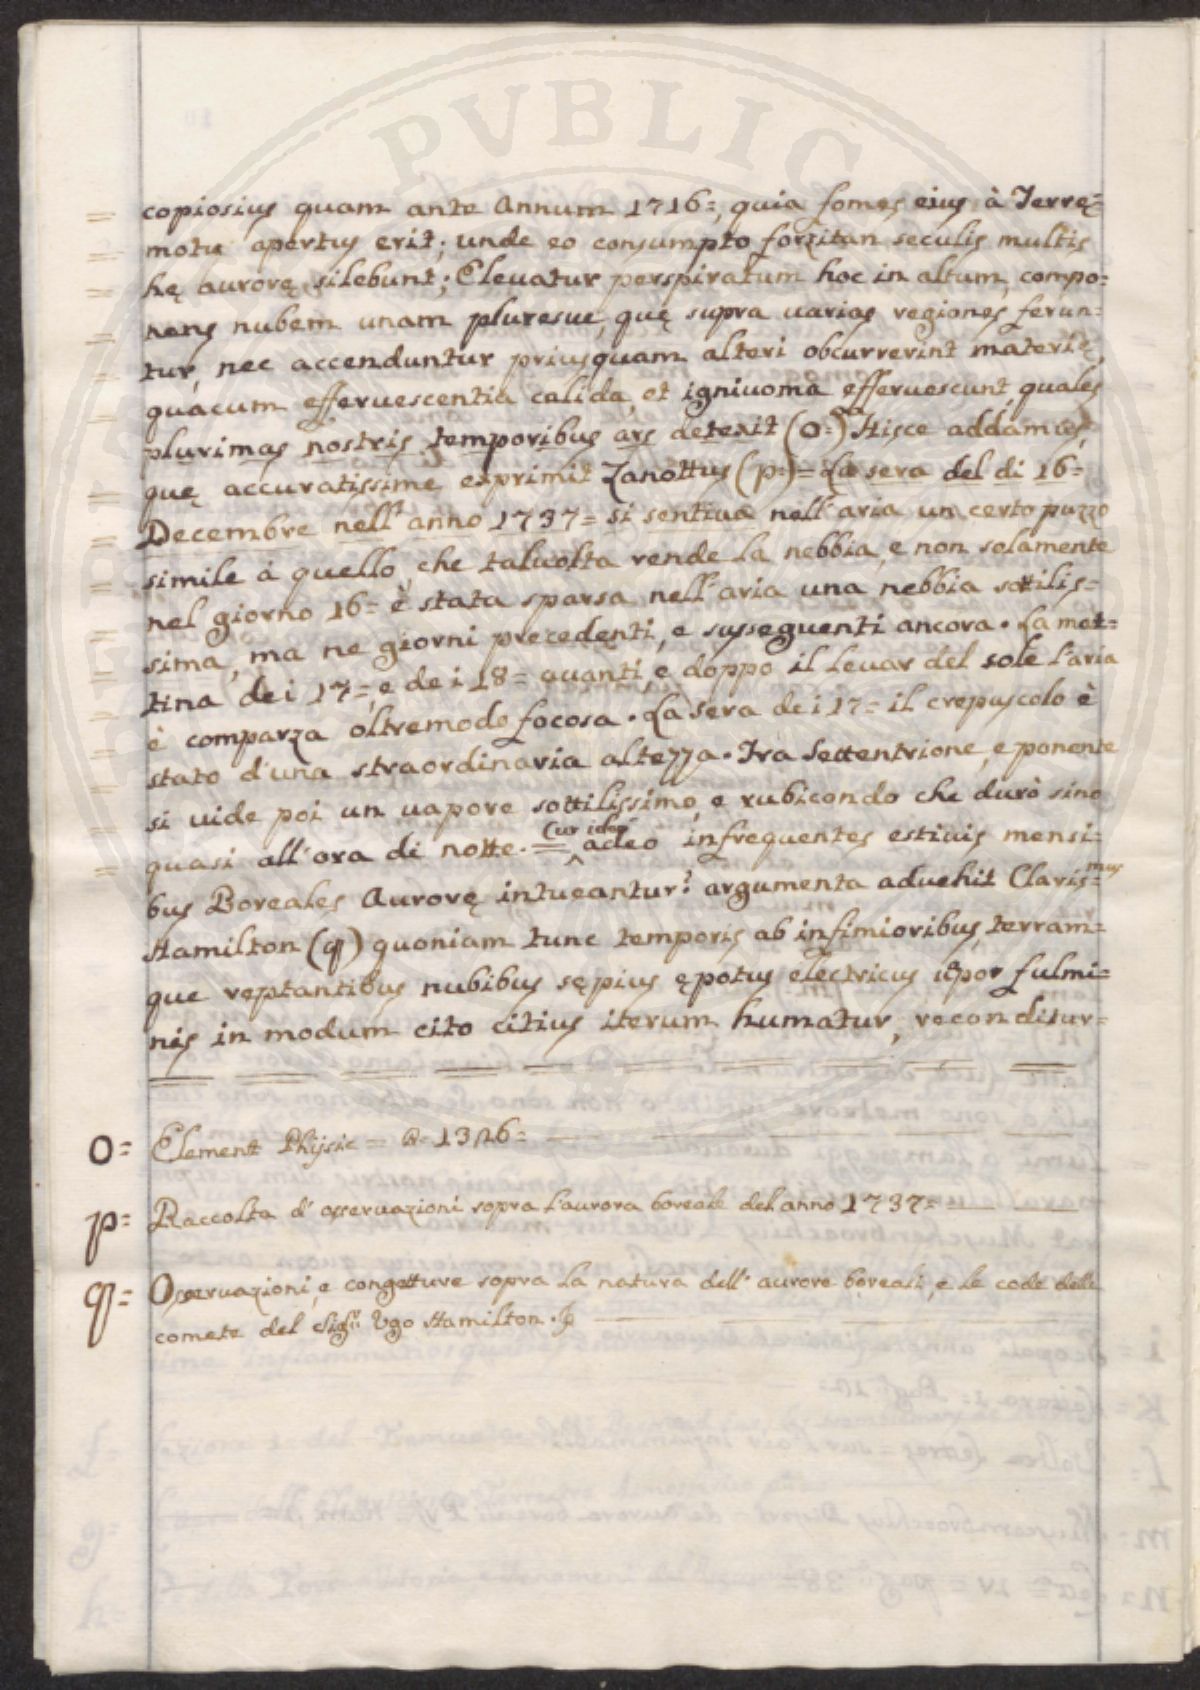 PVBLIC
copiosius quam ante Annum 1716=, quia fomes eius à Terrę=
motu apertus erit; unde eo consumpto forzitan seculis multis
hę aurorę silebunt; Eleuatur perspiratum hoc in altum, compo=
nens nubem unam pluresue, quę supra uarias regiones ferun=
tur, nec accenduntur priusquam alteri obcurrerint materię,
quacum efferuescentia calida, et igniuoma efferuescunt, quales
plurimas nostris temporibus ars detexit (o=) Hisce addamus,
quę accuratissime exprimit Zanottus (p=) = La sera del di 16=
Decembre nell'anno 1737= si sentiua nell'aria un certo puzzo
simile à quello, che taluolta rende la nebbia, e non solamente
nel giorno 16= è stata sparsa nell'aria una nebbia sottilis=
sima, ma ne giorni precedenti, e susseguenti ancora. La mat=
tina dei 17=, e dei 18= auanti, e doppo il leuar del sole l'aria
è comparza oltremodo focosa. La sera dei 17= il crepuscolo è
stato d'una straordinaria altezza. Tra Settentrione, e ponente
si uide poi un uapore sottilissimo, e rubicondo che durò sino
quasi all'ora di notte. = Cur adeo infrequentes estiuis mensi=
bus Boreales Aurorę intueantur? argumenta aduehit Claris=mus
Hamilton (q) quoniam tunc temporis ab infimioribus, terram=
que reptantibus nubibus sępius ępotus electricus uapor fulmi=
nis in modum cito citius iterum humatur, reconditur=
o= Element Phijsic = 1326=
p= Raccolta d'osseruazioni sopra l'aurora boreale del anno 1737=
q= Osseruazioni, e congetture sopra la natura dell'aurore boreali, e le code delle
comete del Sigr: Vgo Hamilton.